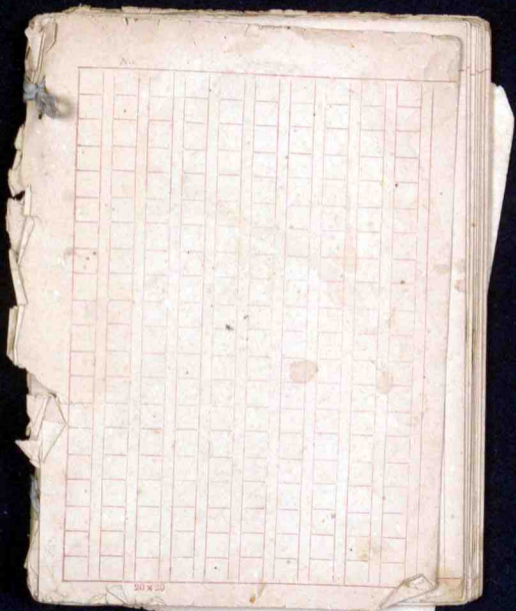 No.
20×20